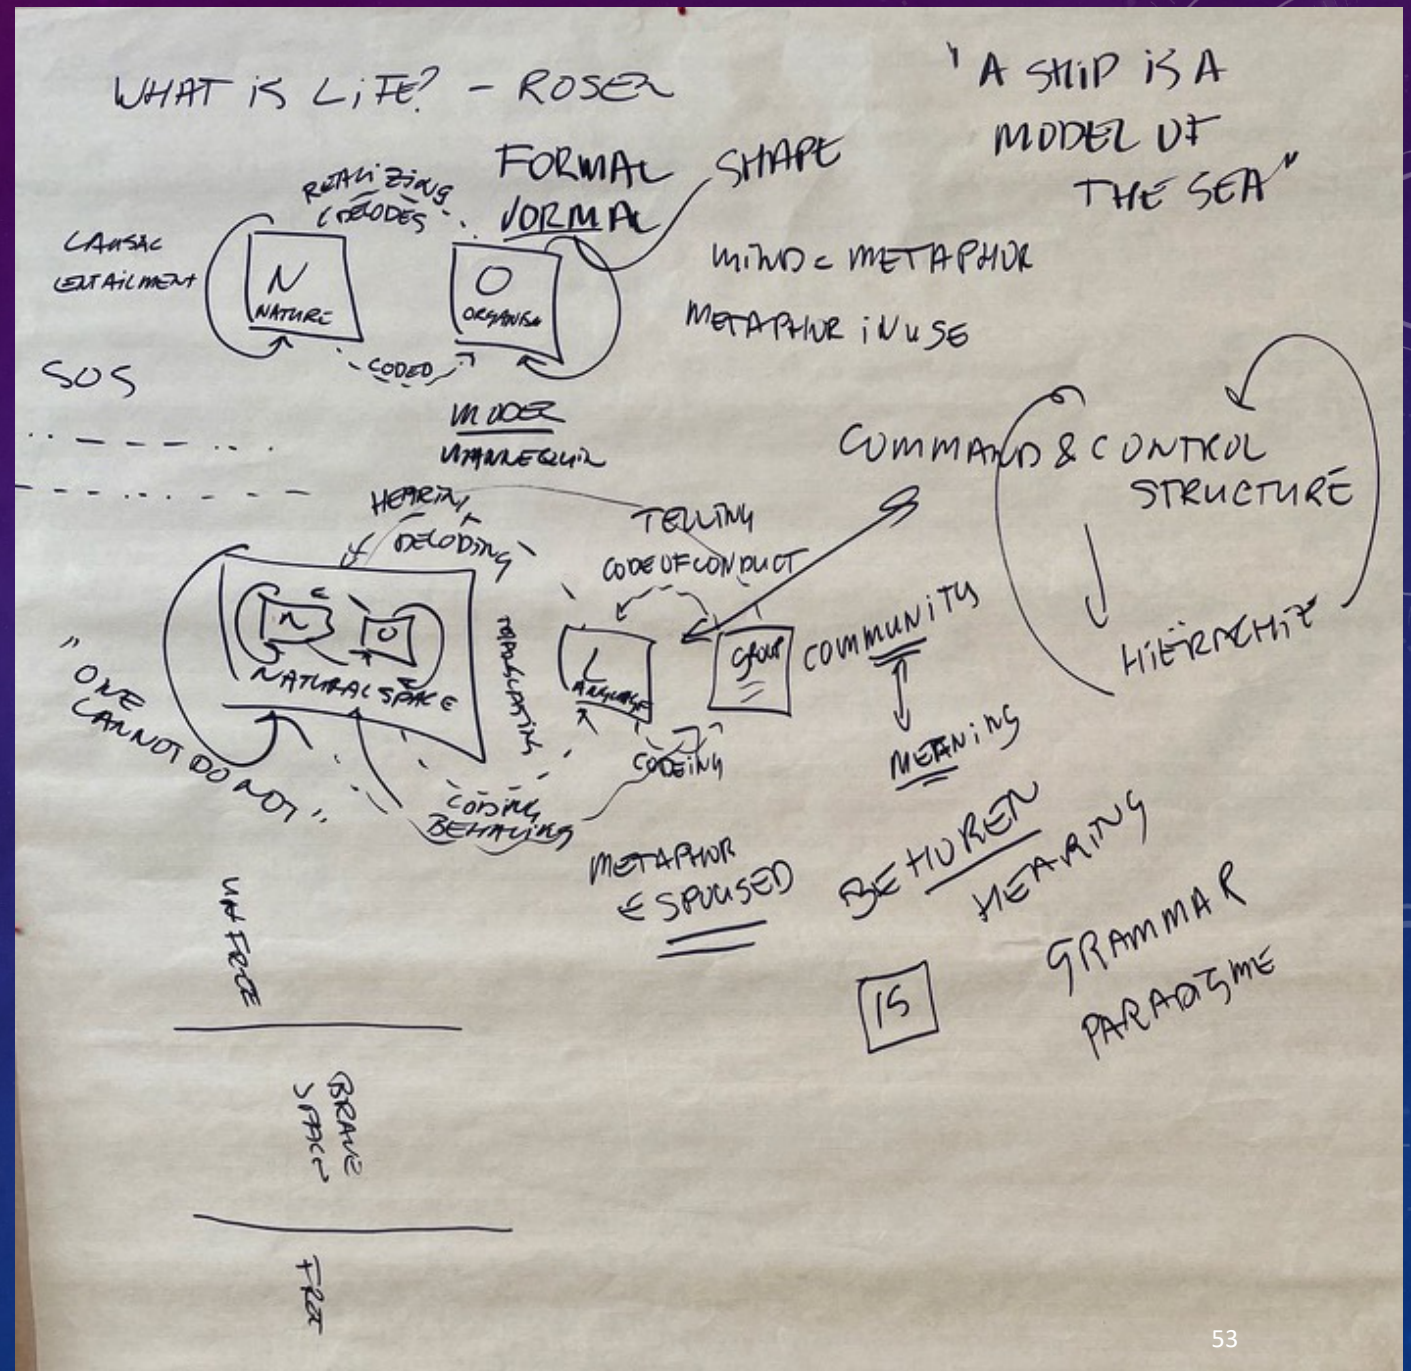 WHAT iS LiFE? - ROSEN
" A SHIP iS A
MODEL OF
THE SEA"
FORMAL
NORMAL
SHAPE
REALiZiNG
DECODES
CAUSAL
ENTAILMENT
N
NATURE
O
ORGANISM
CODED
MODEL
MANNEQUIN
MIND = METAPHOR
METAPHOR iN USE
SOS
COMMAND & CONTROL
STRUCTURE
HIERACHIE
HEARING
DECODING
TELLING
CODE OF CONDUCT
N
O
NATURAL SPACE
LANGUAGE
GROUP
COMMUNITY
MEANING
CODEING
CODING
BEHAVING
"ONE
CANNOT DO NOT"
METAPHOR
ESPOUSED
BEHOREN
HEARING
GRAMMAR
PARADIGME
IS
UNFREE
BRAVE
SPACE
FREE
53